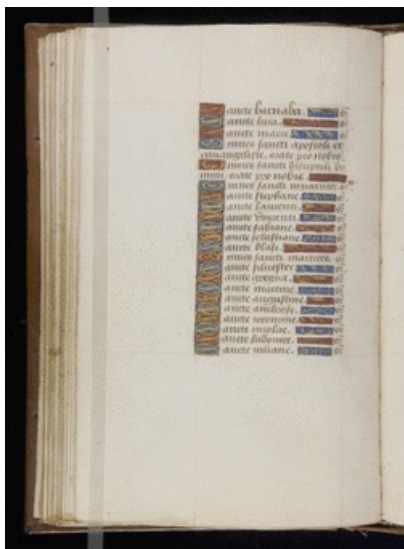 Sancte barnaba.
Sancte luca.
Sancte marce
Omnes sancti apostoli et
euuangeliste. orate pro nobis
Omnes sancti discipuli do
mini. orate pro nobis
Omnes sancti innocentes.
Sancte stephane.
Sancte laurenti.
Sancte vincenti.
Sancte fabiane.
Sancte sebastiane.
Sancte blasi.
Omnes sancti martires.
Sancte siluester
Sancte gregori.
Sancte martine.
Sancte augustine
Sancte ambrosi.
Sancte ieronime.
Sancte
Sancte
Sancte iuliane.